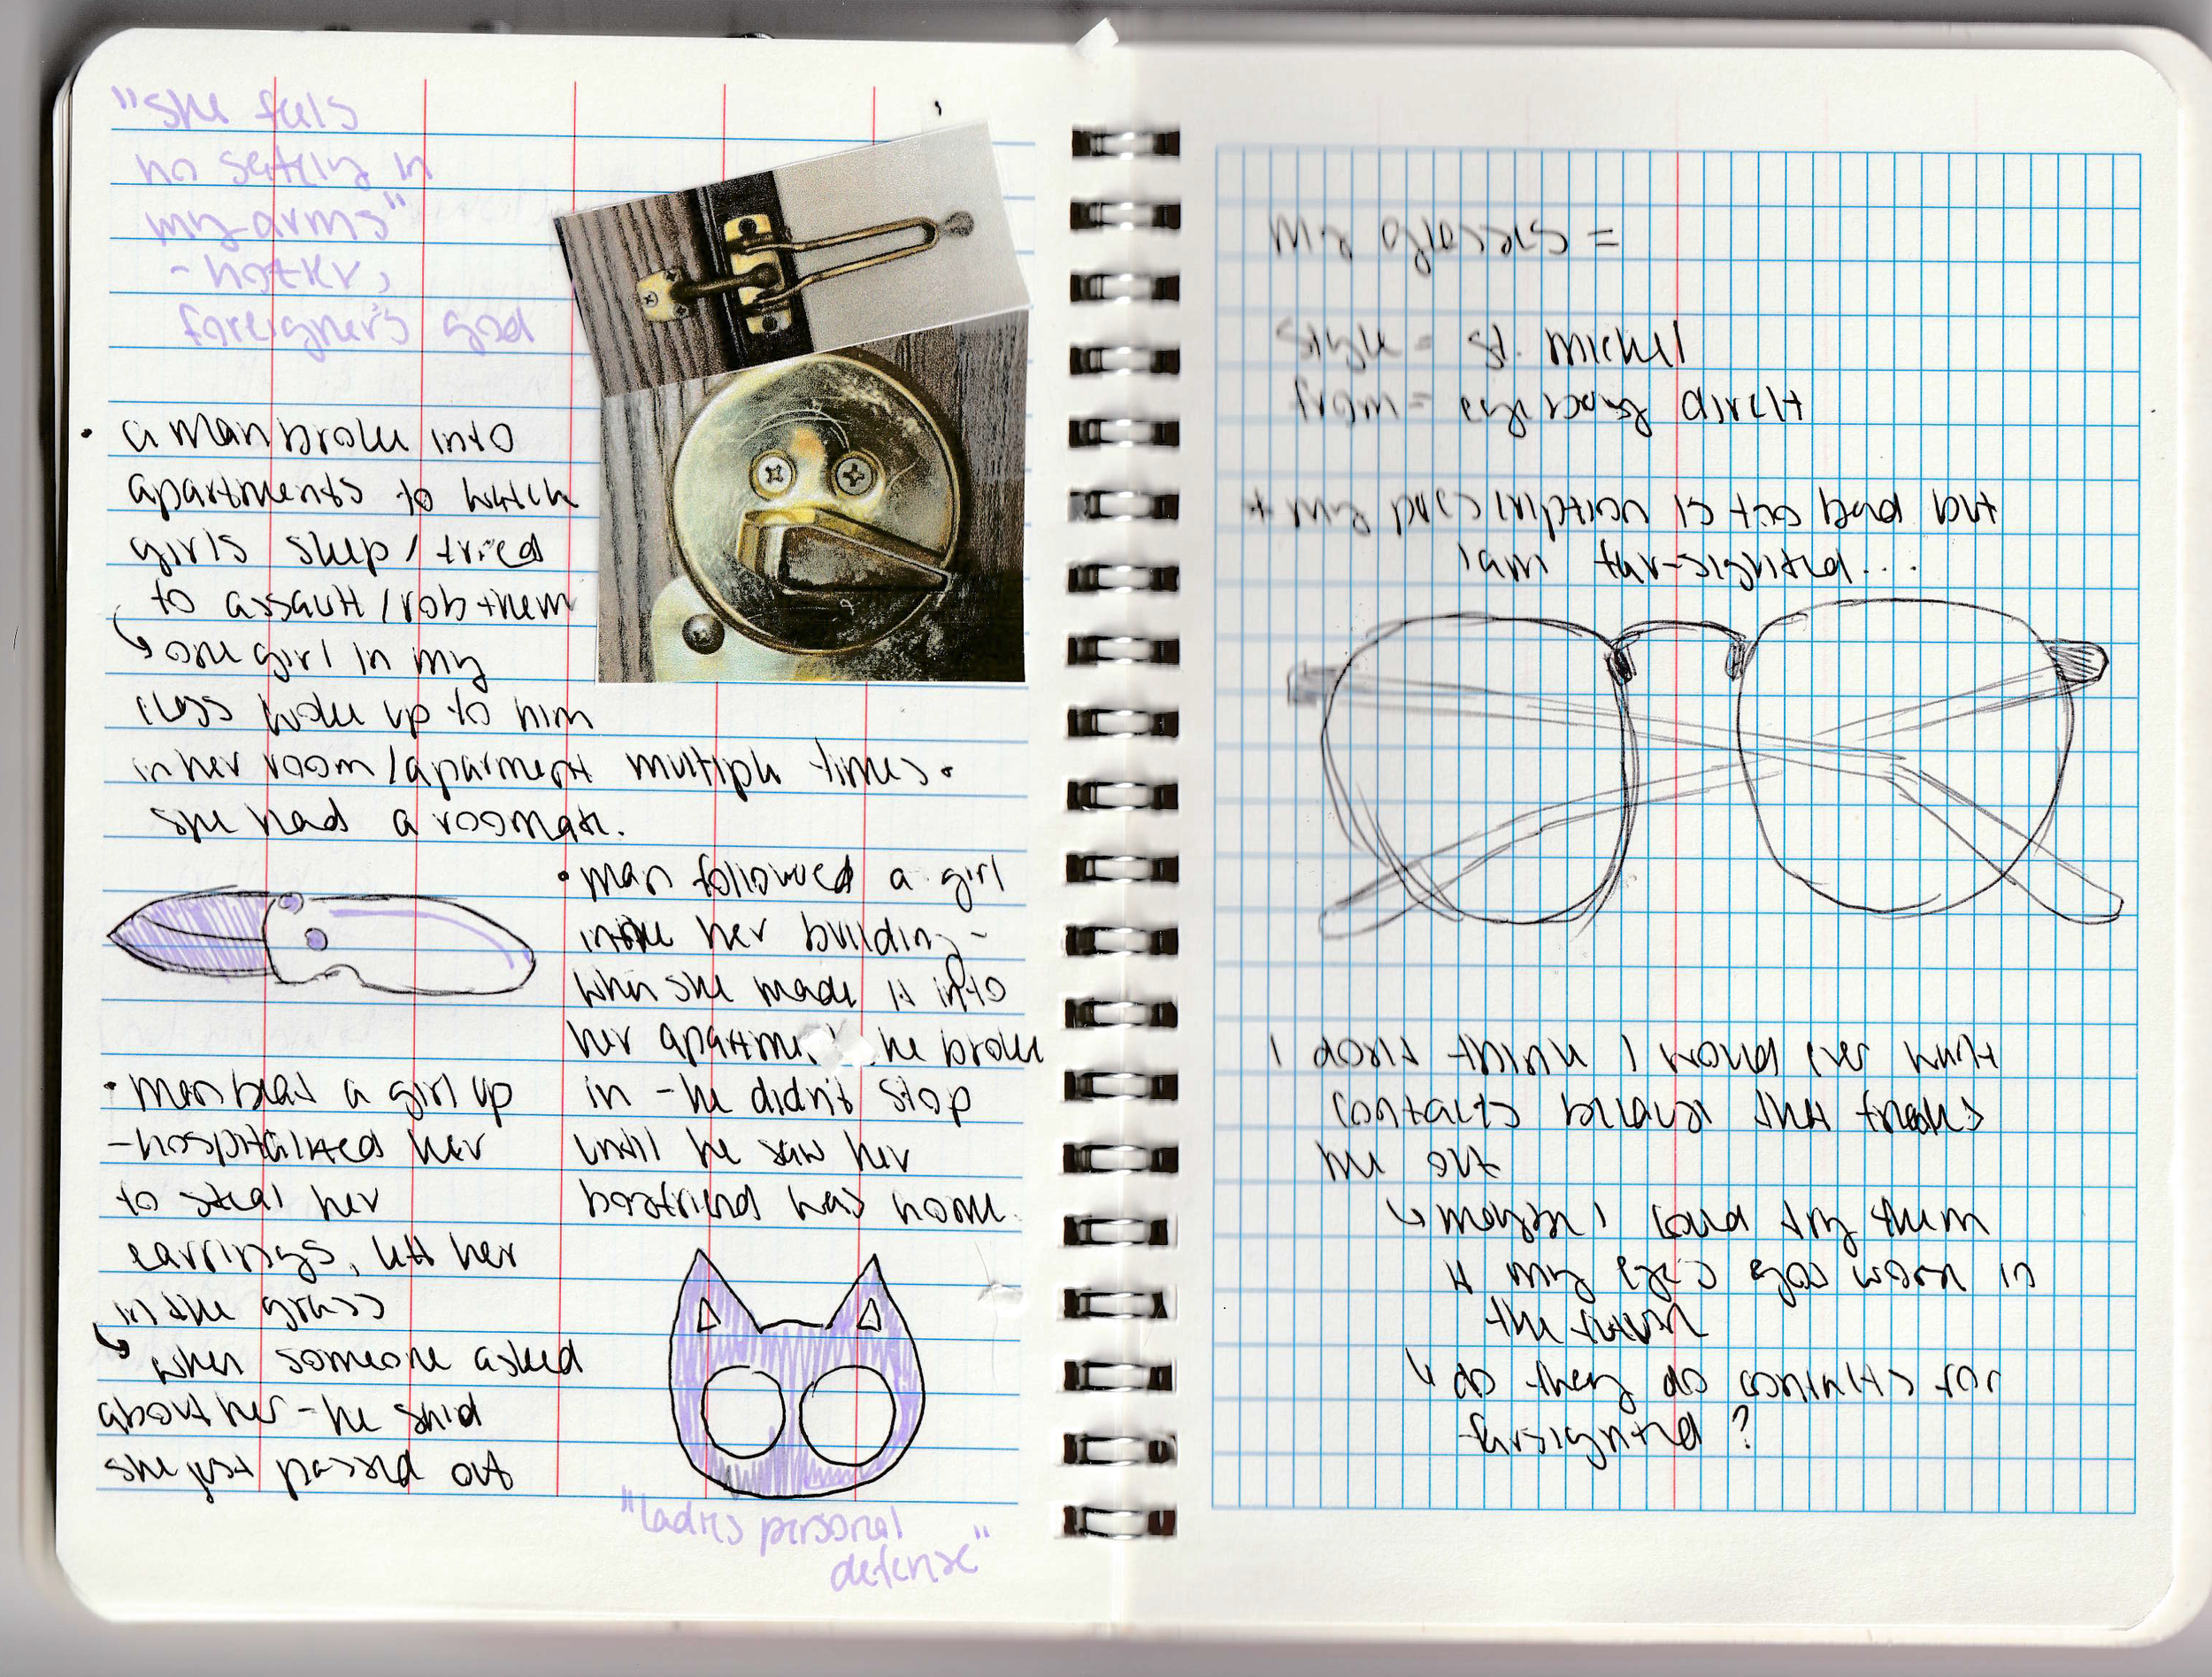 "she feels
no safety in
my arms"
- hozier,
foreigner's god
• a man broke into
apartments to watch
girls sleep / tried
to assault / rob them
↳ one girl in my
class woke up to him
in her room / aparment multiple times.
she had a roomate.
• man followed a girl
into her building -
when she made it into
her apartment, he broke
in - he didn't stop
until he saw her
boyfriend was home.
• man beat a girl up
- hospitalized her
to steal her
earrings, left her
in the grass
↳ when someone asked
about her - he said
she just passed out
"ladies personal
defense"
my glasses =
style = st. michel
from = eyebuy direct
+ my prescription is too bad but
I am far-sighted...
I don't think I would ever want
contacts because that freaks
me out
↳ maybe I could try them
if my eyes get worse in
the future
↳ do they do contacts for
farsighted?